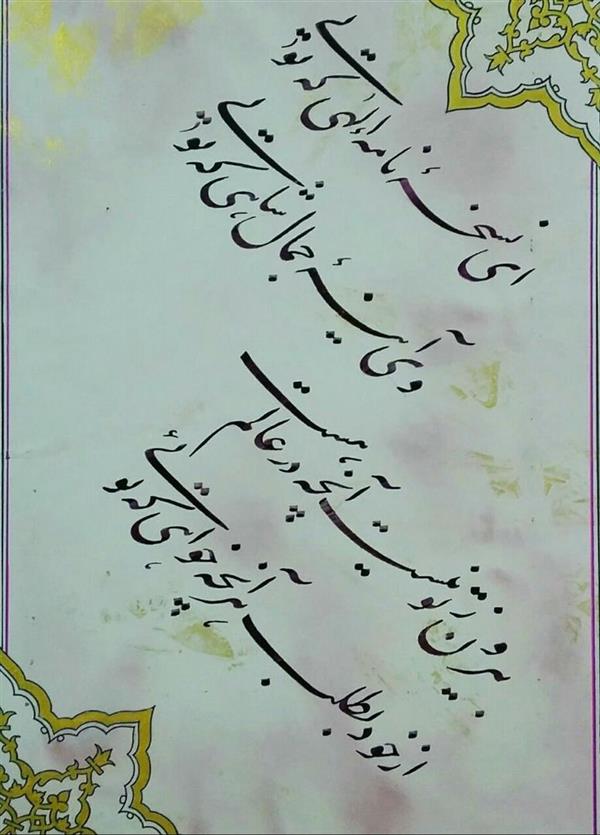 ای نسخهٔ نامهٔ إلهی که توئی
وی آینهٔ جمال شاهی که توئی
بیرون ز تو نیست آنچه در عالم هست
از خود بطلب هر آنچه خواهی که توئی